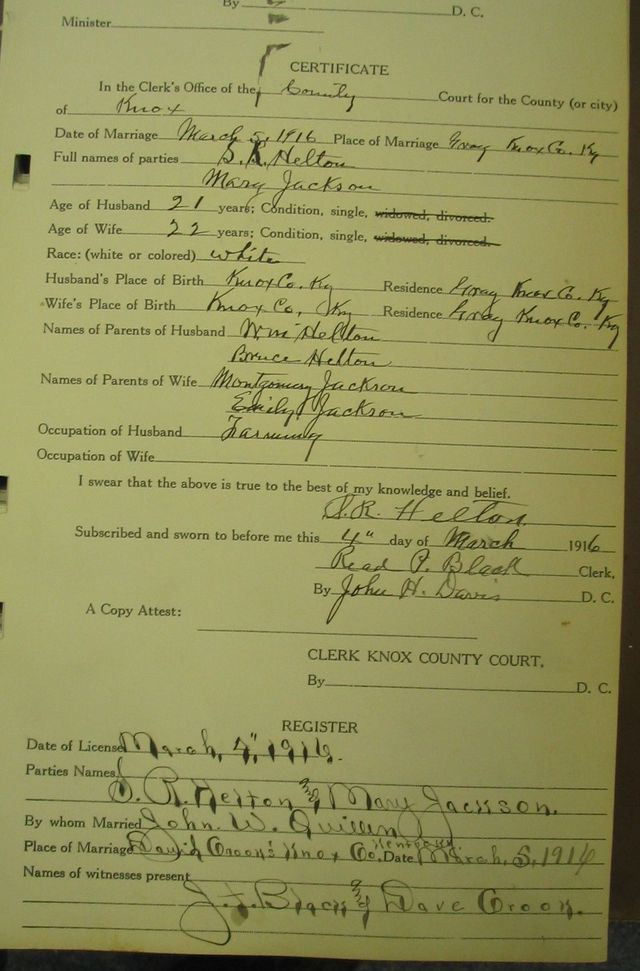 By D. C.
Minister
CERTIFICATE
In the Clerk's Office of the County Court for the County (or city)
of Knox
Date of Marriage March 5, 1916 Place of Marriage Gray Knox Co. Ky
Full names of parties S. R. Helton
Mary Jackson
Age of Husband 21 years; Condition, single, widowed, divorced.
Age of Wife 22 years; Condition, single, widowed, divorced.
Race: (white or colored) white
Husband's Place of Birth Knox Co. Ky Residence Gray Knox Co. Ky
Wife's Place of Birth Knox Co, Ky Residence Gray Knox Co. Ky
Names of Parents of Husband Wm Helton
Bruce Helton
Names of Parents of Wife Montgomery Jackson
Emily Jackson
Occupation of Husband Farming
Occupation of Wife
I swear that the above is true to the best of my knowledge and belief.
S. R. Helton
Subscribed and sworn to before me this 4" day of March 1916
Read P. Black Clerk,
By John H. Davis D. C.
A Copy Attest:
CLERK KNOX COUNTY COURT.
By D. C.
REGISTER
Date of License March, 4", 1916.
Parties Names
S. R. Helton and Mary Jackson.
By whom Married John. W. Quillen
Place of Marriage David Crook's Knox Co. Kentucky. Date March, 5, 1916
Names of witnesses present
J. J. Black and Dave Crook.